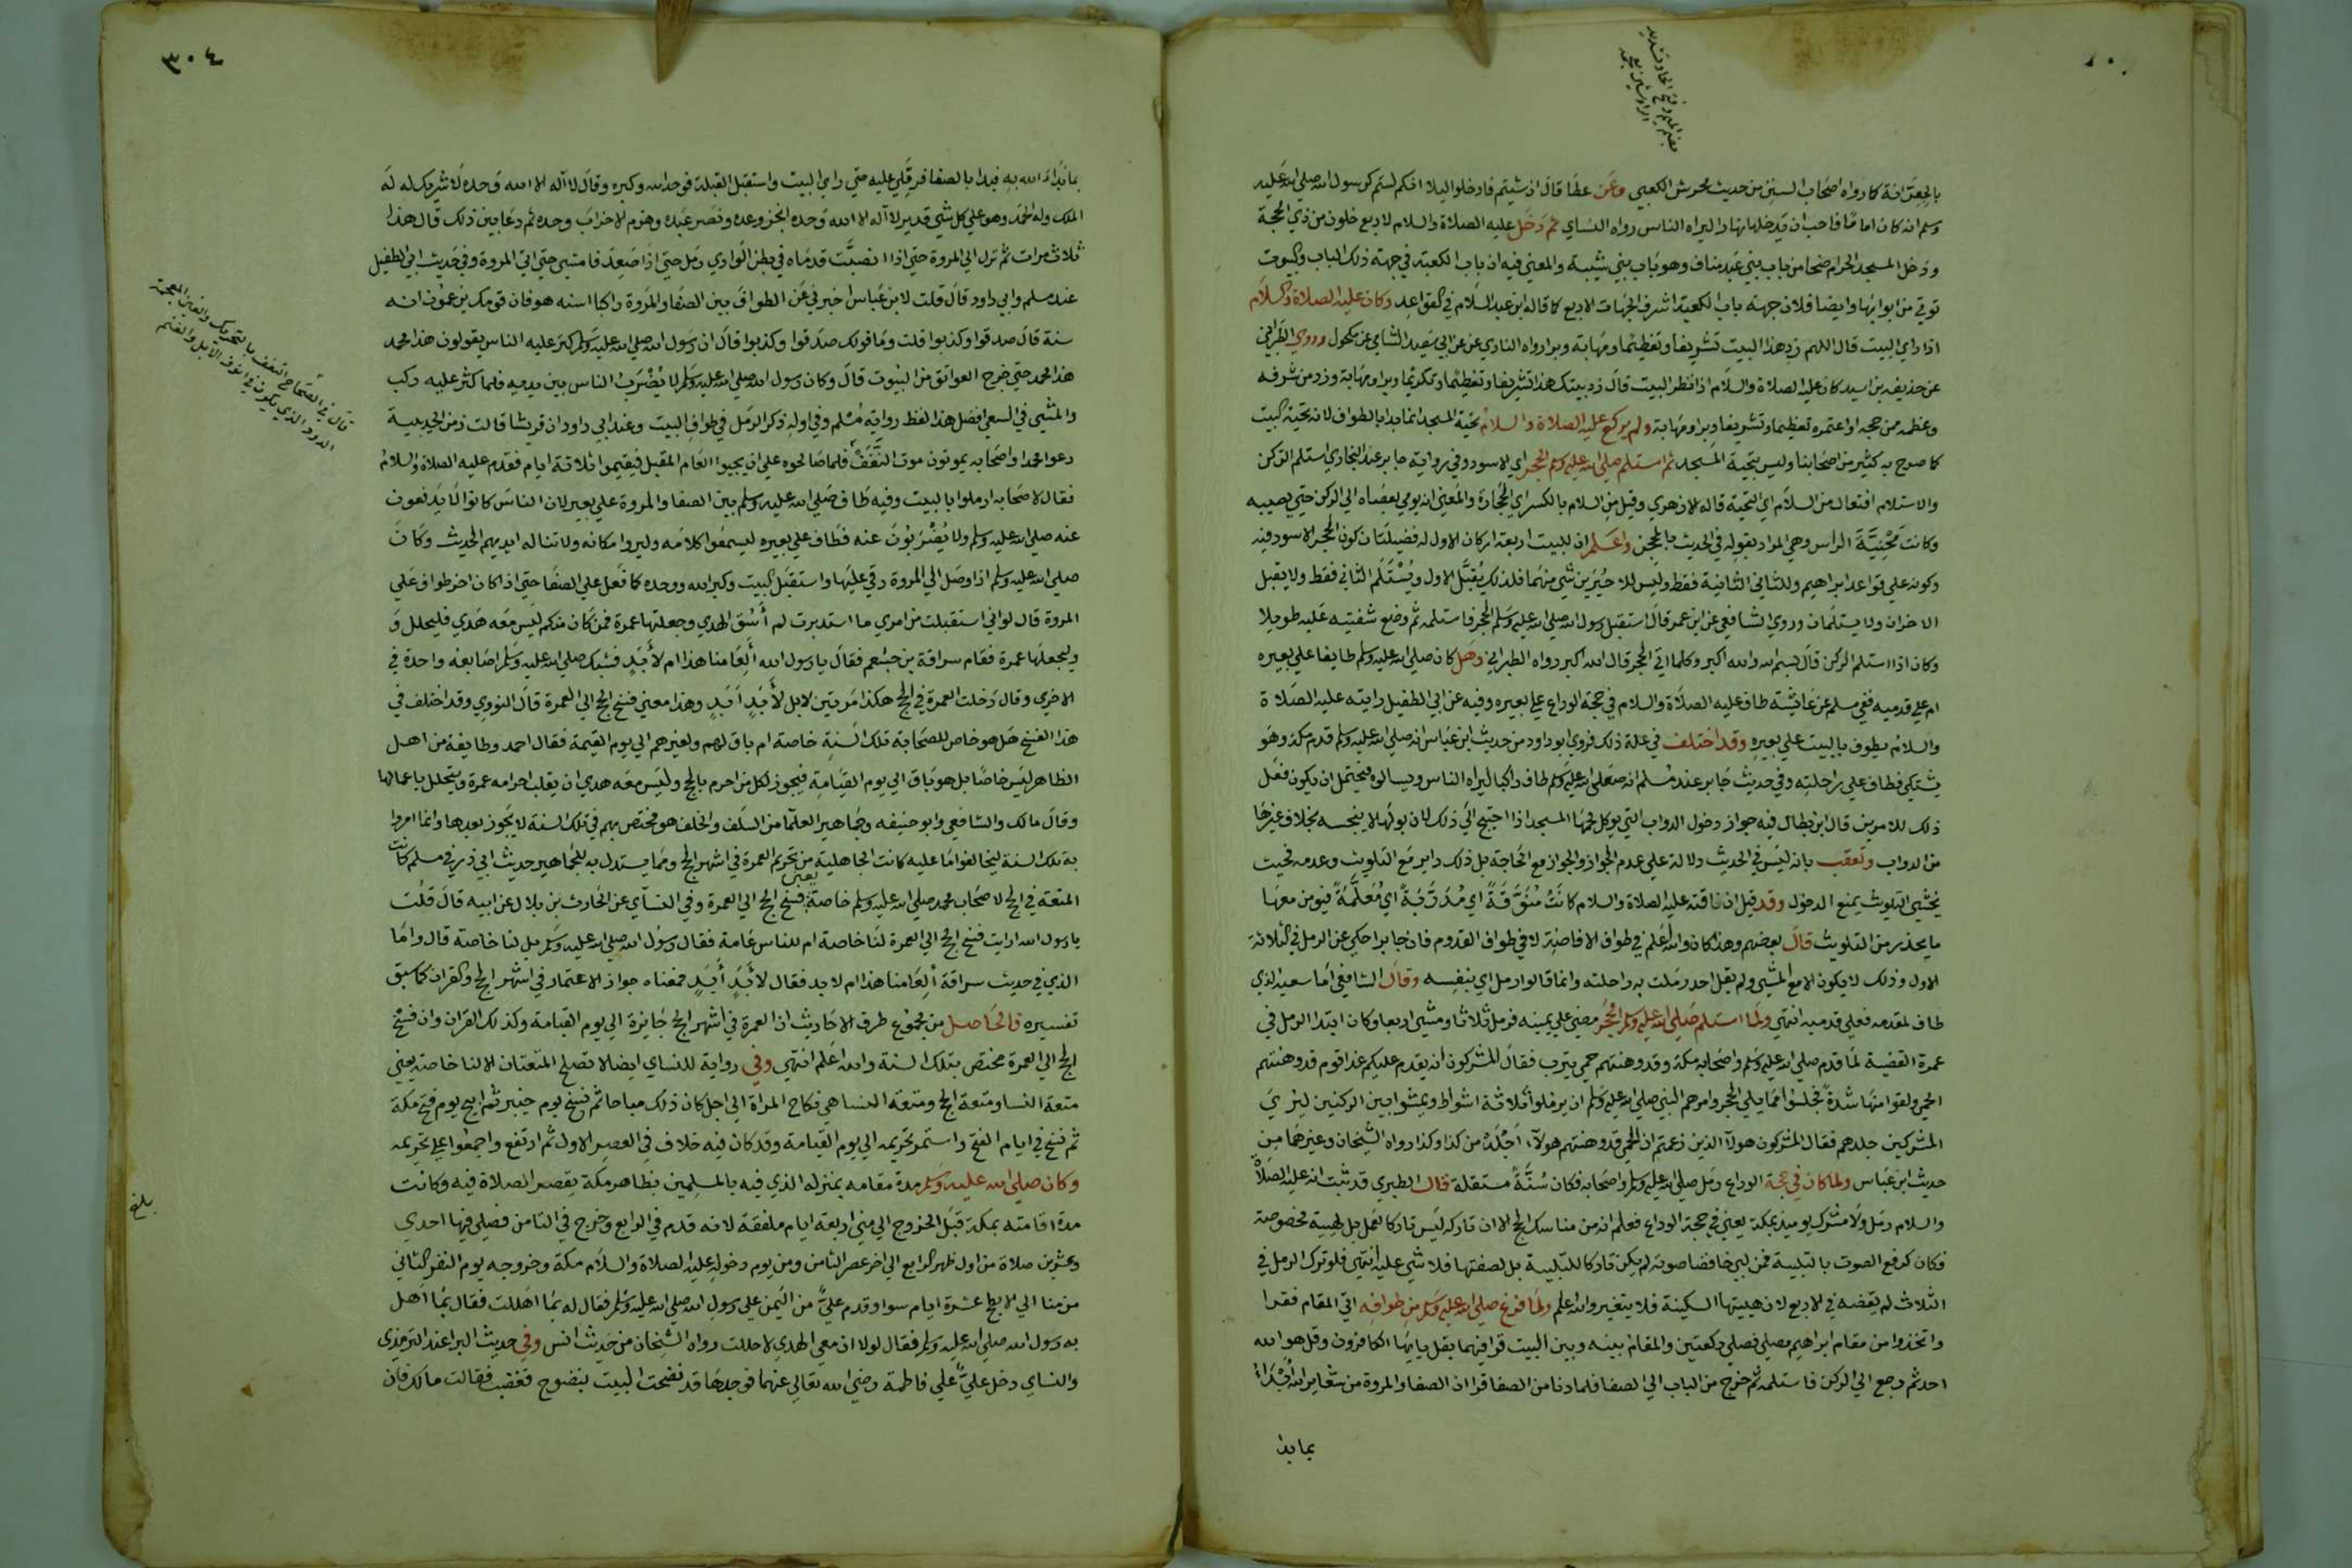 بضم الميم وفتح الخا وتشديد
الرا وشين معجمة
بالجِعرّانة كما رواه اصحاب السنن من حديث محرش الكعبي وعن عطا قال ان شيتم فادخلوا ليلا انكم لستم كرسول الله صلي الله عليه
وسلم انه كان اماما فاحب ان يدخلها نهارا ليراه الناس رواه النساي ثم دخل عليه الصلاة والسلام لاربع خلون من ذي الحجة
ودخل المسجد الحرام ضحا من باب بني عبد مناف وهو باب بني شيبة والمعني فيه ان باب الكعبة في جهة ذلك الباب والبيوت
توتي من ابوابها وايضا فلان جهة باب الكعبة اشرف الجهات الاربع كما قاله ابن عبد السلام في القواعد وكان عليه الصلاة والسلام
اذا راي البيت قال اللهم زد هذا البيت تشريفا وتعظيما ومهابة وبرا رواه الثوري عن ابي سعيد الشامي عن مكحول وروي الطبراني
عن حذيفه بن اسيد كان عليه الصلاة والسلام اذا نظر البيت قال زد بيتك هذا تشريفا وتعظيما وتكريما وبرا ومهابة وزد من شرفه
وعظمه ممن حجه او اعتمره تعظيما وتشريفا وبرا ومهابة ولم يركع عليه الصلاة والسلام تحية المسجد انما بدا بالطواف لانه تحية البيت
كما صرح به كثير من اصحابنا وليس بتحية المسجد ثم استلم صلي الله عليه وسلم الحجر اي الاسود وفي رواية جابر عند البخاري استلم الركن
والاستلام افتعال من السلام اي التحية قاله الازهري وقيل من السلام بالكسر اي الحجارة والمعني انه يومي بعصاه الي الركن حتي يصيبه
وكانت محنية الراس وهي المراد بقوله في الحديث بالمحجن واعلم ان للبيت اربعة اركان الاول له فضيلتان كون الحجر الاسود فيه
وكونه علي قواعد ابراهيم وللثاني الثانية فقط وليس للاخيرين شي منهما فلذلك يقبّل الاول ويستلم الثاني فقط ولا يقبل
الاخران ولا يستلمان وروي الشافعي عن ابن عمر قال استقبل رسول الله صلي الله عليه وسلم الحجر فاستلمه ثم وضع شفتيه عليه طويلا
وكان اذا استلم الركن قال بسم الله والله اكبر وكلما اتي الحجر قال الله اكبر رواه الطبراني وهل كان صلي الله عليه وسلم طايفا علي بعيره
ام علي قدميه ففي مسلم عن عايشة طاف عليه الصلاة والسلام في حجة الوداع علي بعيره وفيه عن ابي الطفيل رايته عليه الصلاة
والسلام يطوف بالبيت علي بعيره وقد اختلف في علة ذلك فروي ابو داود من حديث ابن عباس انه صلي الله عليه وسلم قدم مكة وهو
يشتكي فطاف علي راحلته وفي حديث جابر عند مسلم انه صلي الله عليه وسلم طاف راكبا ليراه الناس ويسالوه فيحتمل ان يكون فعل
ذلك للامرين قال ابن بطال فيه جواز دخول الدواب التي يوكل لحمها المسجد اذا احتيج الي ذلك لان بولها لا ينجسه بخلاف غيرها
من الدواب وتعقب بانه ليس في الحديث دلالة علي عدم الجواز والجواز مع الحاجة بل ذلك داير مع التلويث وعدمه فحيث
يخشي التلويث يمنع الدخول وقد قيل ان ناقته عليه الصلاة والسلام كانت مُنوَّقة اي مُدرَّبة اي مُعلَّمة فيومن معها
ما يحذر من التلويث قال بعضهم وهذا كان والله اعلم في طواف الافاضة لا في طواف القدوم فان جابرا حكي عن الرمل في الثلاثة
الاول وذلك لا يكون الا مع المشي ولم يقل احد رملت به راحلته وانما قالوا رمل اي بنفسه وقال الشافعي اما سعيه الذي
طاف لمقدمه فعلي قدميه انتهي ولما استلم صلي الله عليه وسلم الحجر مضي علي يمينه فرمل ثلاثا ومشي اربعا وكان ابتدا الرمل في
عمرة القضية لما قدم صلي الله عليه وسلم واصحابه مكة وقد وهنتهم حمي يثرب فقال المشركون انه يقدم عليكم غدا قوم قد وهنتهم
الحمي ولقوا منها شدة فجلسوا مما يلي الحجر وامرهم النبي صلي الله عليه وسلم ان يرملوا ثلاثة اشواط ويمشوا بين الركنين ليري
المشركين جلدهم فقال المشركون هولا الذين زعمتم ان الحمي قد وهنتهم هولاء اجلد من كذا وكذا رواه الشيخان وغيرهما من
حديث ابن عباس ولما كان في حجة الوداع رمل صلي الله عليه وسلم واصحابه فكان سُنَّة مستقلة قال الطبري قد ثبت انه عليه الصلاة
والسلام رمل ولا مشرك يوميذ بمكة يعني في حجة الوداع فعلم انه من مناسك الحج الا ان تاركه ليس تاركا لعمل بل لهيية مخصوصة
فكان كرفع الصوت بالتلبية فمن لبي خافضا صوته لم يكن تاركا للتلبية بل لصفتها فلا شي عليه انتهي فلو ترك الرمل في
الثلاث لم يقضه في الاربع لان هييتها السكينة فلا يتغير والله اعلم ولما فرغ صلي الله عليه وسلم من طوافه اتي المقام فقرا
واتخذوا من مقام ابراهيم مصلي فصلي ركعتين والمقام بينه وبين البيت قرا فيهما بقل يا ايها الكافرون وقل هو الله
احد ثم رجع الي الركن فاستلمه ثم خرج من الباب الي الصفا فلما دنا من الصفا قرا ان الصفا والمروة من شعاير الله ابدا
بما بدا
٣٠٤
بما بَدَا الله به فبدا بالصفا فرقي عليه حتي راي البيت واستقبل القبلة فوحد الله وكبره وقال لا اله الا الله وحده لا شريك له له
الملك وله الحمد وهو علي كل شي قدير لا اله الا الله وحده انجز وعده ونصر عبده وهزم الاحزاب وحده ثم دعا بين ذلك قال هذا
ثلاث مرات ثم نزل الي المروة حتي اذا انصبَّت قدماه في بطن الوادي رمل حتي اذا صعد فامشي حتي اتي المروة وفي حديث ابي الطفيل
عند مسلم وابي داود قال قلت لابن عباس اخبرني عن الطواف بين الصفا والمروة راكبا اسنه هو فان قومك يزعمون انه
سنة قال صدقوا وكذبوا قلت وما قولك صدقوا وكذبوا قال ان رسول الله صلي الله عليه وسلم كثر عليه الناس يقولون هذا محمد
هذا محمد حتي خرج العواتق من البيوت قال وكان رسول الله صلي الله عليه وسلم لا يُضْرَب الناس بين يديه فلما كثر عليه ركب
والمشي في السعي افضل هذا لفظ رواية مسلم وفي اوله ذكر الرمل في طواف البيت وعند ابي داود ان قريشا قالت زمن الحديبية
دعوا محمدا واصحابه يموتون موت النَّغَف فلما صالحوه علي ان يجيوا العام المقبل فيقيموا ثلاثة ايام فقدم عليه الصلاة والسلام
فقال لاصحابه ارملوا بالبيت وفيه طاف صلي الله عليه وسلم بين الصفا والمروة علي بعير لان الناس كانوا لا يدفعون
عنه صلي الله عليه وسلم ولا يُضْرَبُونَ عنه فطاف علي بعيره ليسمعوا كلامه وليروا مكانه ولا تناله ايديهم الحديث وكان
صلي الله عليه وسلم اذا وصل الي المروة رقي عليها واستقبل البيت وكبر الله ووحده كما فعل علي الصفا حتي اذا كان اخر طواف علي
المروة قال لو اني استقبلت من امري ما استدبرت لم اسق الهدي وجعلتها عمرة فمن كان منكم ليس معه هدي فليحلل و
وليجعلها عمرة فقام سراقة بن جشعم فقال يا رسول الله ألعامنا هذا ام لأَبَدٍ فشبك صلي الله عليه وسلم اصابعه واحدة في
الاخري وقال دخلت العمرة في الحج هكذا مرتين لا بل لأَبَدٍ أَبَدٍ وهذا معني فسخ الحج الي العمرة قال النووي وقد اختلف في
هذا الفسخ هل هو خاص للصحابة تلك السنة خاصة ام باق لهم ولغيرهم الي يوم القيمة فقال احمد وطايفة من اهل
الظاهر ليس خاصا بل هو باق الي يوم القيامة فيجوز لكل من احرم بالحج وليس معه هدي ان يقلب احرامه عمرة ويتحلل باعمالها
وقال مالك والشافعي وابو حنيفه وجماهير العلما من السلف والخلف هو مختص بهم في تلك السنة لا يجوز بعدها وانما امروا
به تلك السنة ليخالفوا ما عليه كانت الجاهلية من تحريم العمرة في اشهر الحج ومما يستدل به للجماهير حديث ابي ذر في مسلم كانت
المتعة في الحج لاصحاب محمد صلي الله عليه وسلم خاصة يعني فسخ الحج الي العمرة وفي النساي عن الحارث بن بلال عن ابيه قال قلت
يا رسول الله ارايت فسخ الحج الي العمرة لنا خاصة ام للناس عامة فقال رسول الله صلي الله عليه وسلم بل لنا خاصة قال واما
الذي في حديث سراقة ألعامنا هذا ام لابد فقال لأَبَدٍ أَبَدٍ فمعناه جواز الاعتمار في اشهر الحج والقران كما سبق
تفسيره فالحاصل من مجموع طرق الاحاديث ان العمرة في اشهر الحج جايزة الي يوم القيامة وكذلك القران وان فسخ
الحج الي العمرة مختص بتلك السنة والله اعلم انتهي وفي رواية للنساي ايضا لا تصلح المتعتان الا لنا خاصة يعني
متعة النسا ومتعة الحج ومتعة النسا هي نكاح المراة الي اجل كان ذلك مباحا ثم نسخ يوم خيبر ثم ابيح يوم فتح مكة
ثم نسخ في ايام الفتح واستمر تحريمه الي يوم القيامة وقد كان فيه خلاف في العصر الاول ثم ارتفع واجمعوا علي تحريمه
وكان صلي الله عليه وسلم مدة مقامه بمنزله الذي فيه بالمسلمين بظاهر مكة يقصر الصلاة فيه وكانت
مدة اقامته بمكة قبل الخروج الي مني اربعة ايام ملفقة لانه قدم في الرابع وخرج في الثامن فصلي فيها احدي
وعشرين صلاة من اول ظهر الرابع الي اخر عصر الثامن ومن يوم دخوله عليه الصلاة والسلام مكة وخروجه يوم النفر الثاني
من منا الي الابطح عشرة ايام سوا وقدم علي من اليمن علي رسول الله صلي الله عليه وسلم فقال له بما اهللت فقال بما اهل
به رسول الله صلي الله عليه وسلم فقال لولا ان معي الهدي لاحللت رواه الشيخان من حديث انس وفي حديث البرا عند الترمذي
والنساي دخل عليّ علي فاطمة رضي الله تعالي عنهما فوجدها قد نضحت البيت بنضوح فغضب فقالت مالك فان
قال في الصحاح النغف بالتحريك والغين المعجمة
الدود الذي يكون في انوف الابل والغنم
بلغ